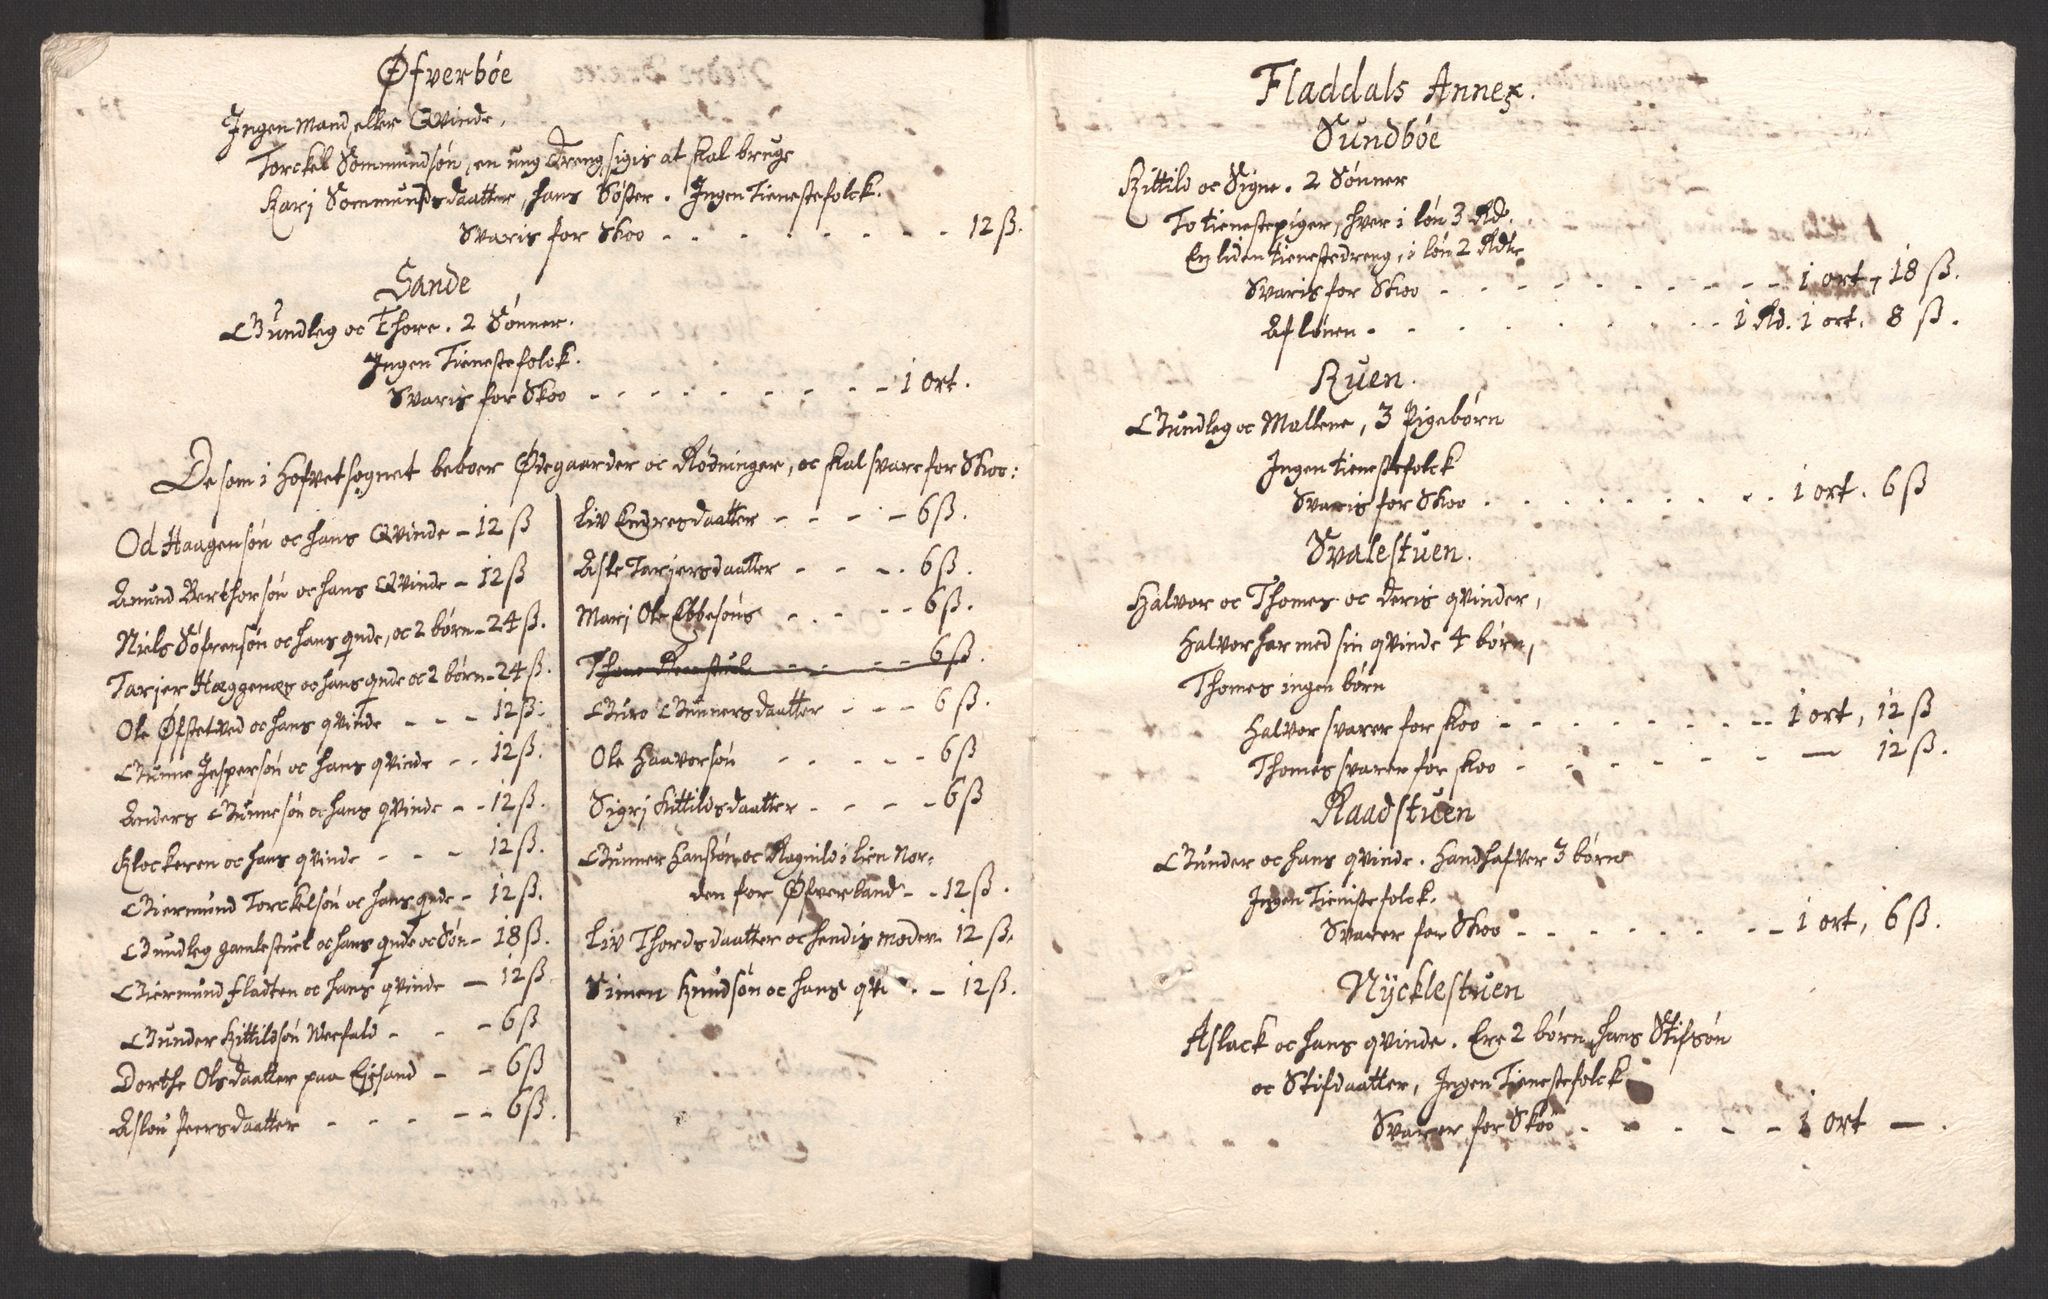 Øfverbøe
Ingen Mand eller Qvinde,
Torckel Sommundsøn, en ung dreng, sigis at skal bruge
Karj Sommundsdaatter, hans Søster. Ingen Tienestefolck.
Svaris for Skoo - - - - - - - - 12 ß.
Sande
Gundleg oc Thore. 2 Sønner.
Ingen Tienestefolck.
Svaris for Skoo - - - - - - - - - 1 Ort.
De som i Hofvetsognet beboer Ødegaarder oc Rødninger, oc skal svare for Skoo:
Od Haagensøn oc hans Qvinde - 12 ß
Amund Berthorsøn oc hans Qvinde - 12 ß
Niels Søfrensøn oc hans qnde, oc 2 børn - 24 ß.
Tarjer Hæggenæs oc hans qnde oc 2 børn - 24 ß.
Ole Øfstetved oc hans qvinde - - - 12 ß.
Gunne Jespersøn oc hans qvinde - - 12 ß.
Anders Gunnesøn oc hans qvinde - - 12 ß.
Klockeren oc hans qvinde - - - 12 ß.
Giermund Torckelsøn oc hans qnde - 12 ß.
Gundleg Gamlestuel oc hans qnde oc Søn - 18 ß.
Giermund fladten oc hans qvinde - 12 ß.
Gunder Kittildsøn - - - 6 ß
Dorthe Olsdaatter paa - - 6 ß
Aslou Peersdaatter - - - - - - 6 ß.
Liv Endresdaatter - - - - 6 ß.
Asle Tarjersdaatter - - - - 6 ß.
Marj Ole Ebbesøns - - - - 6 ß.
- - - - 6 ß.
Guro Gunnersdaatter - - - 6 ß.
Ole Haavorsøn - - - - - 6 ß
Sigrj Kittildsdaatter - - - - 6 ß
Gunner Hansøn oc Ragnild i Lien Nor-
den for Øfverland - - 12 ß.
Liv Thordsdaatter oc hendis moder - 12 ß.
Simen Knudsøn oc hans - 12 ß.
Fladdals Annex.
Sundbøe
Kittild oc Signe. 2 Sønner
To tienestepiger, hver i løn 3 Rd.
En liden tienestedreng, i løn 2 Rdlr
Svaris for Skoo - - - - - - - - - - 1 ort, 18 ß.
Af lønen - - - - - - - - - 1 Rd. 1 ort. 8 ß.
Ruen.
Gundleg oc Mallene, 3 Pigebørn
Ingen tienestefolck
Svaris for Skoo - - - - - - - - - 1 ort. 6 ß
Svalestuen.
Halvor oc Thomes oc deris qvinder,
Halvor har med sin qvinde 4 børn,
Thomes ingen børn
Halvor svarer for skoo - - - - - - - - 1 ort, 12 ß
Thomes svarer for skoo - - - - - - - — 12 ß.
Raadstuen
Gunder oc hans qvinde. Hand hafver 3 børn
Ingen Tienistefolck.
Svarer for Skoo - - - - - - - - 1 ort, 6 ß.
Nÿcklestuen
Aslack oc hans qvinde. Ere 2 børn, hans Stifsøn
oc Stifdaatter, Ingen Tienestefolck
Svarer for Skoo - - - - - 1 ort — .